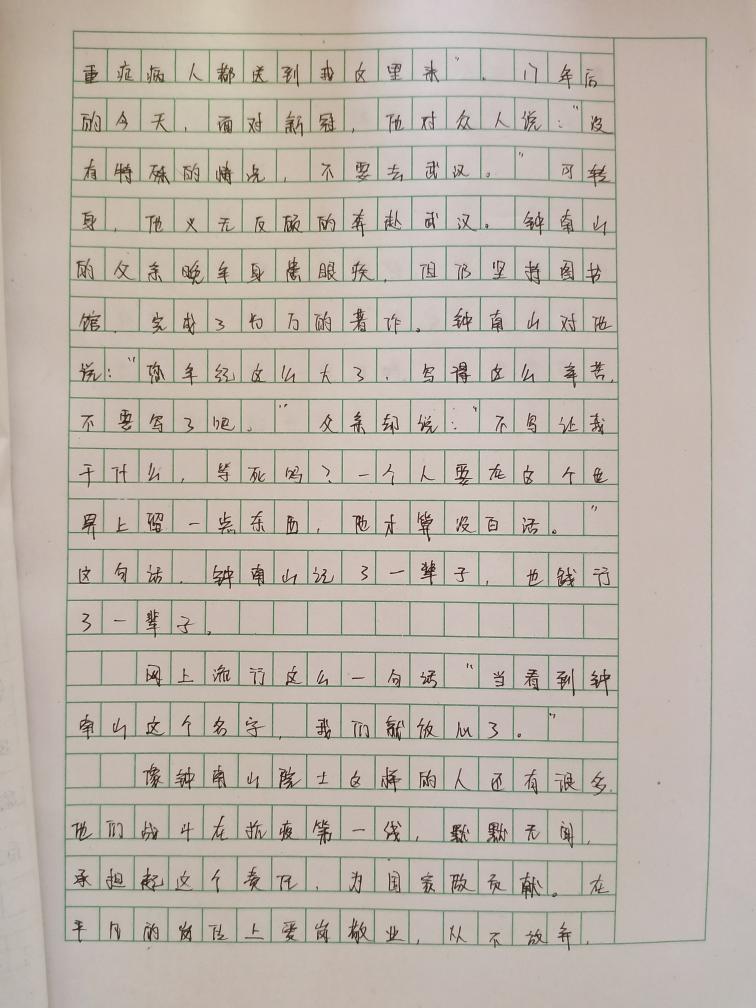 重症病人都送到我这里来”。17年后
的今天，面对新冠，他对众人说：“没
有特殊的情况，不要去武汉。”可转
身，他义无反顾的奔赴武汉。钟南山
的父亲晚年身患眼疾，但仍坚持图书
馆，完成了为万的著作。钟南山对他
说：“您年纪这么大了，写得这么辛苦，
不要写了吧。”父亲却说：“不写让我
干什么，等死吗？一个人要在这个世
界上留一点东西，他才算没白活。”
这句话，钟南山记了一辈子，也践行
了一辈子。
网上流行这么一句话“当看到钟
南山这个名字，我们就放心了。”
像钟南山院士这样的人还有很多，
他们战斗在抗疫第一线，默默无闻，
承担起这个责任，为国家做贡献。在
平凡的岗位上爱岗敬业，从不放弃，